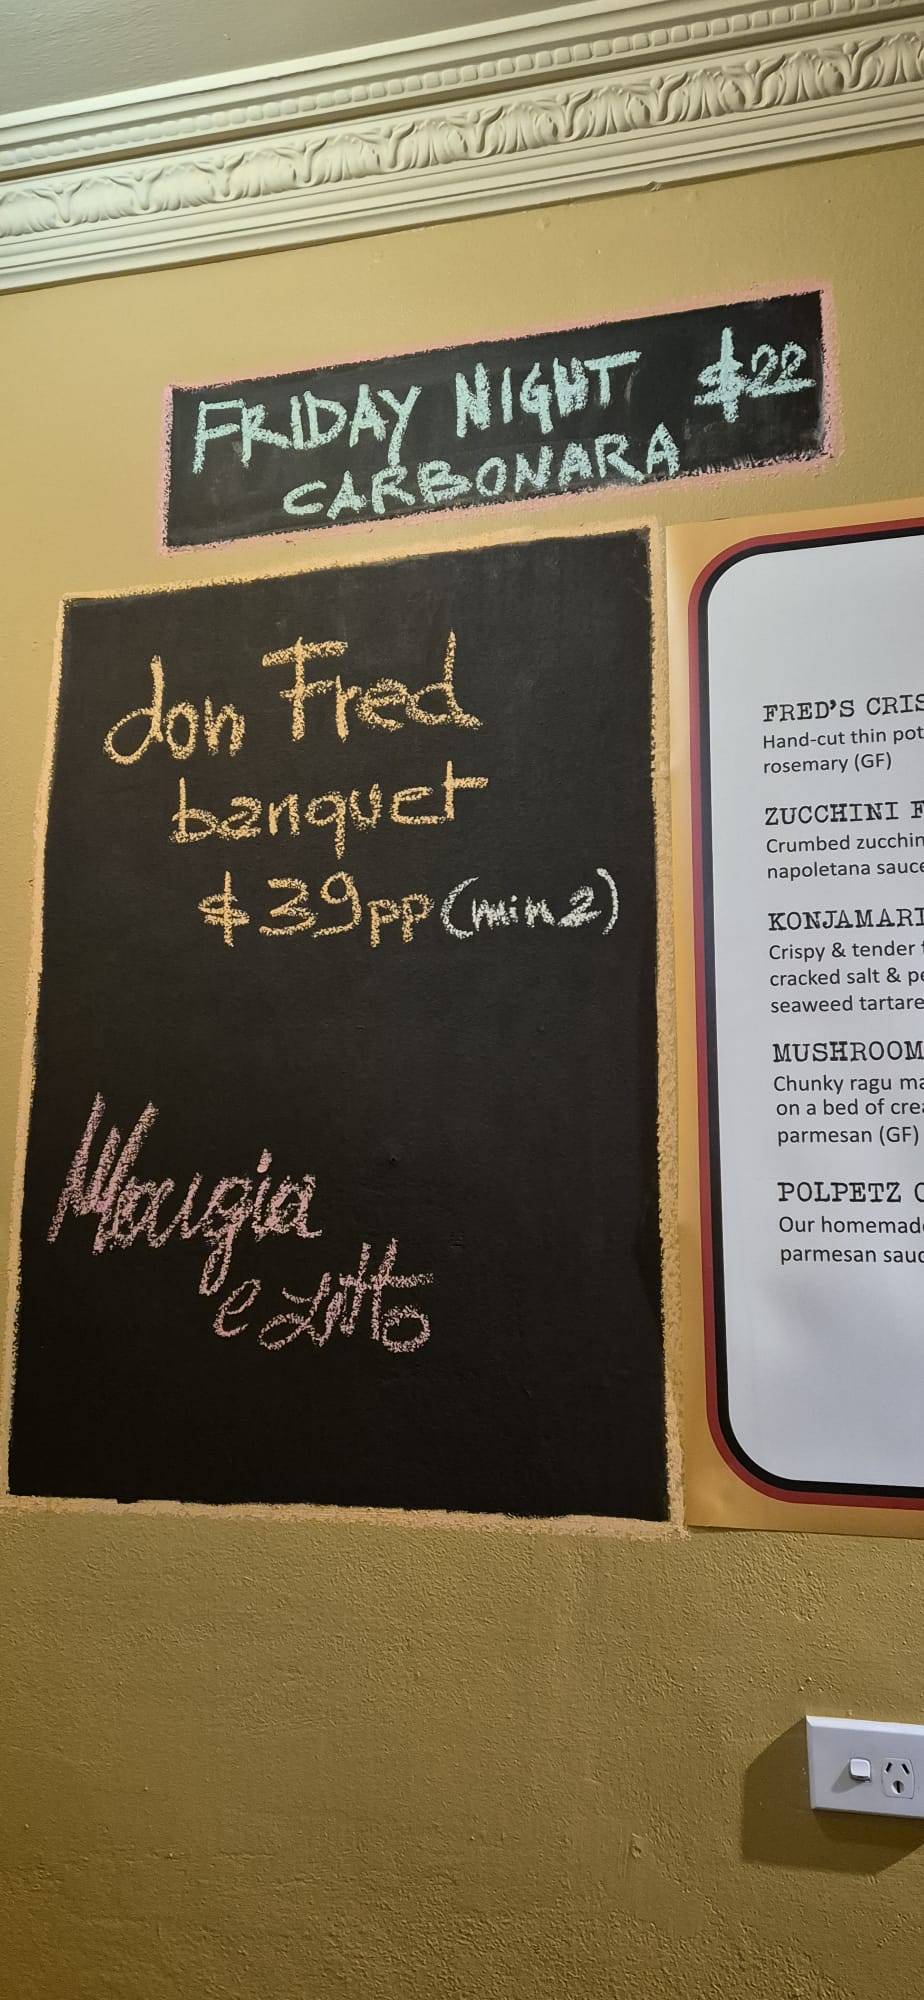 FRIDAY NIGHT $22
CARBONARA
don Fred
banquet
$39pp (min 2)
Mangia
e
FRED'S CRIS
Hand-cut thin pot
rosemary (GF)
ZUCCHINI F
Crumbed zucchin
napoletana sauce
KONJAMARI
Crispy & tender
cracked salt & pe
seaweed tartare
MUSHROOM
Chunky ragu ma
on a bed of crea
parmesan (GF)
POLPETZ
Our homemade
parmesan sauc